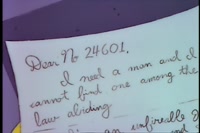 Dear No 24601.
I need a man and I
cannot find one among the
law abiding